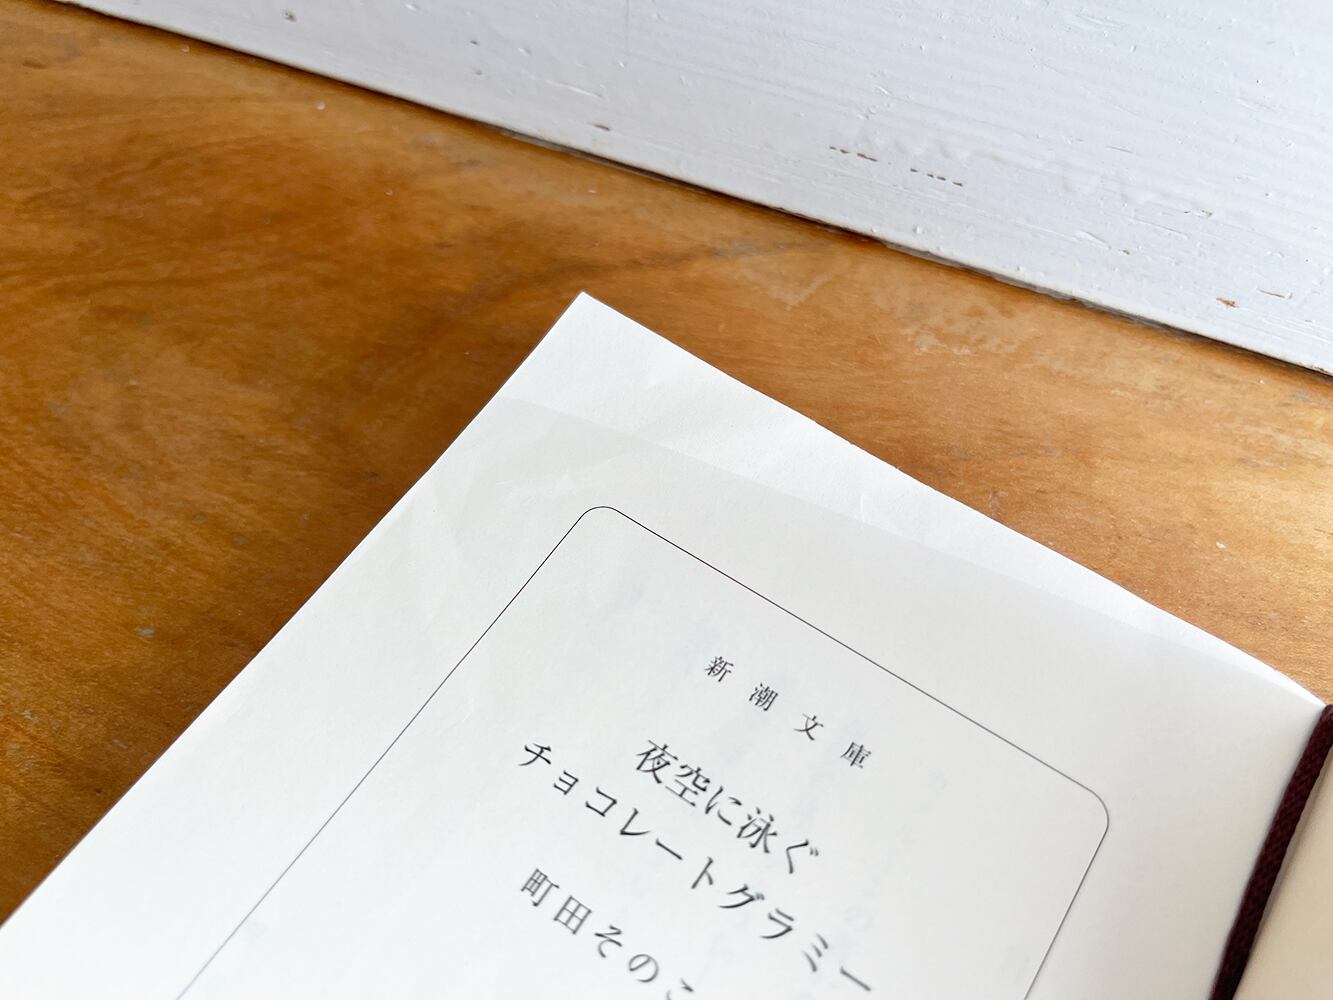 新潮文庫
夜空に泳ぐ
チョコレートグラミー
町田そのこ